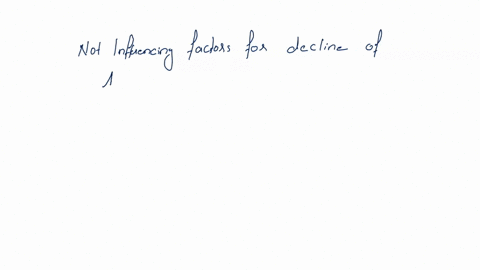 Not Influencing factors for decline of